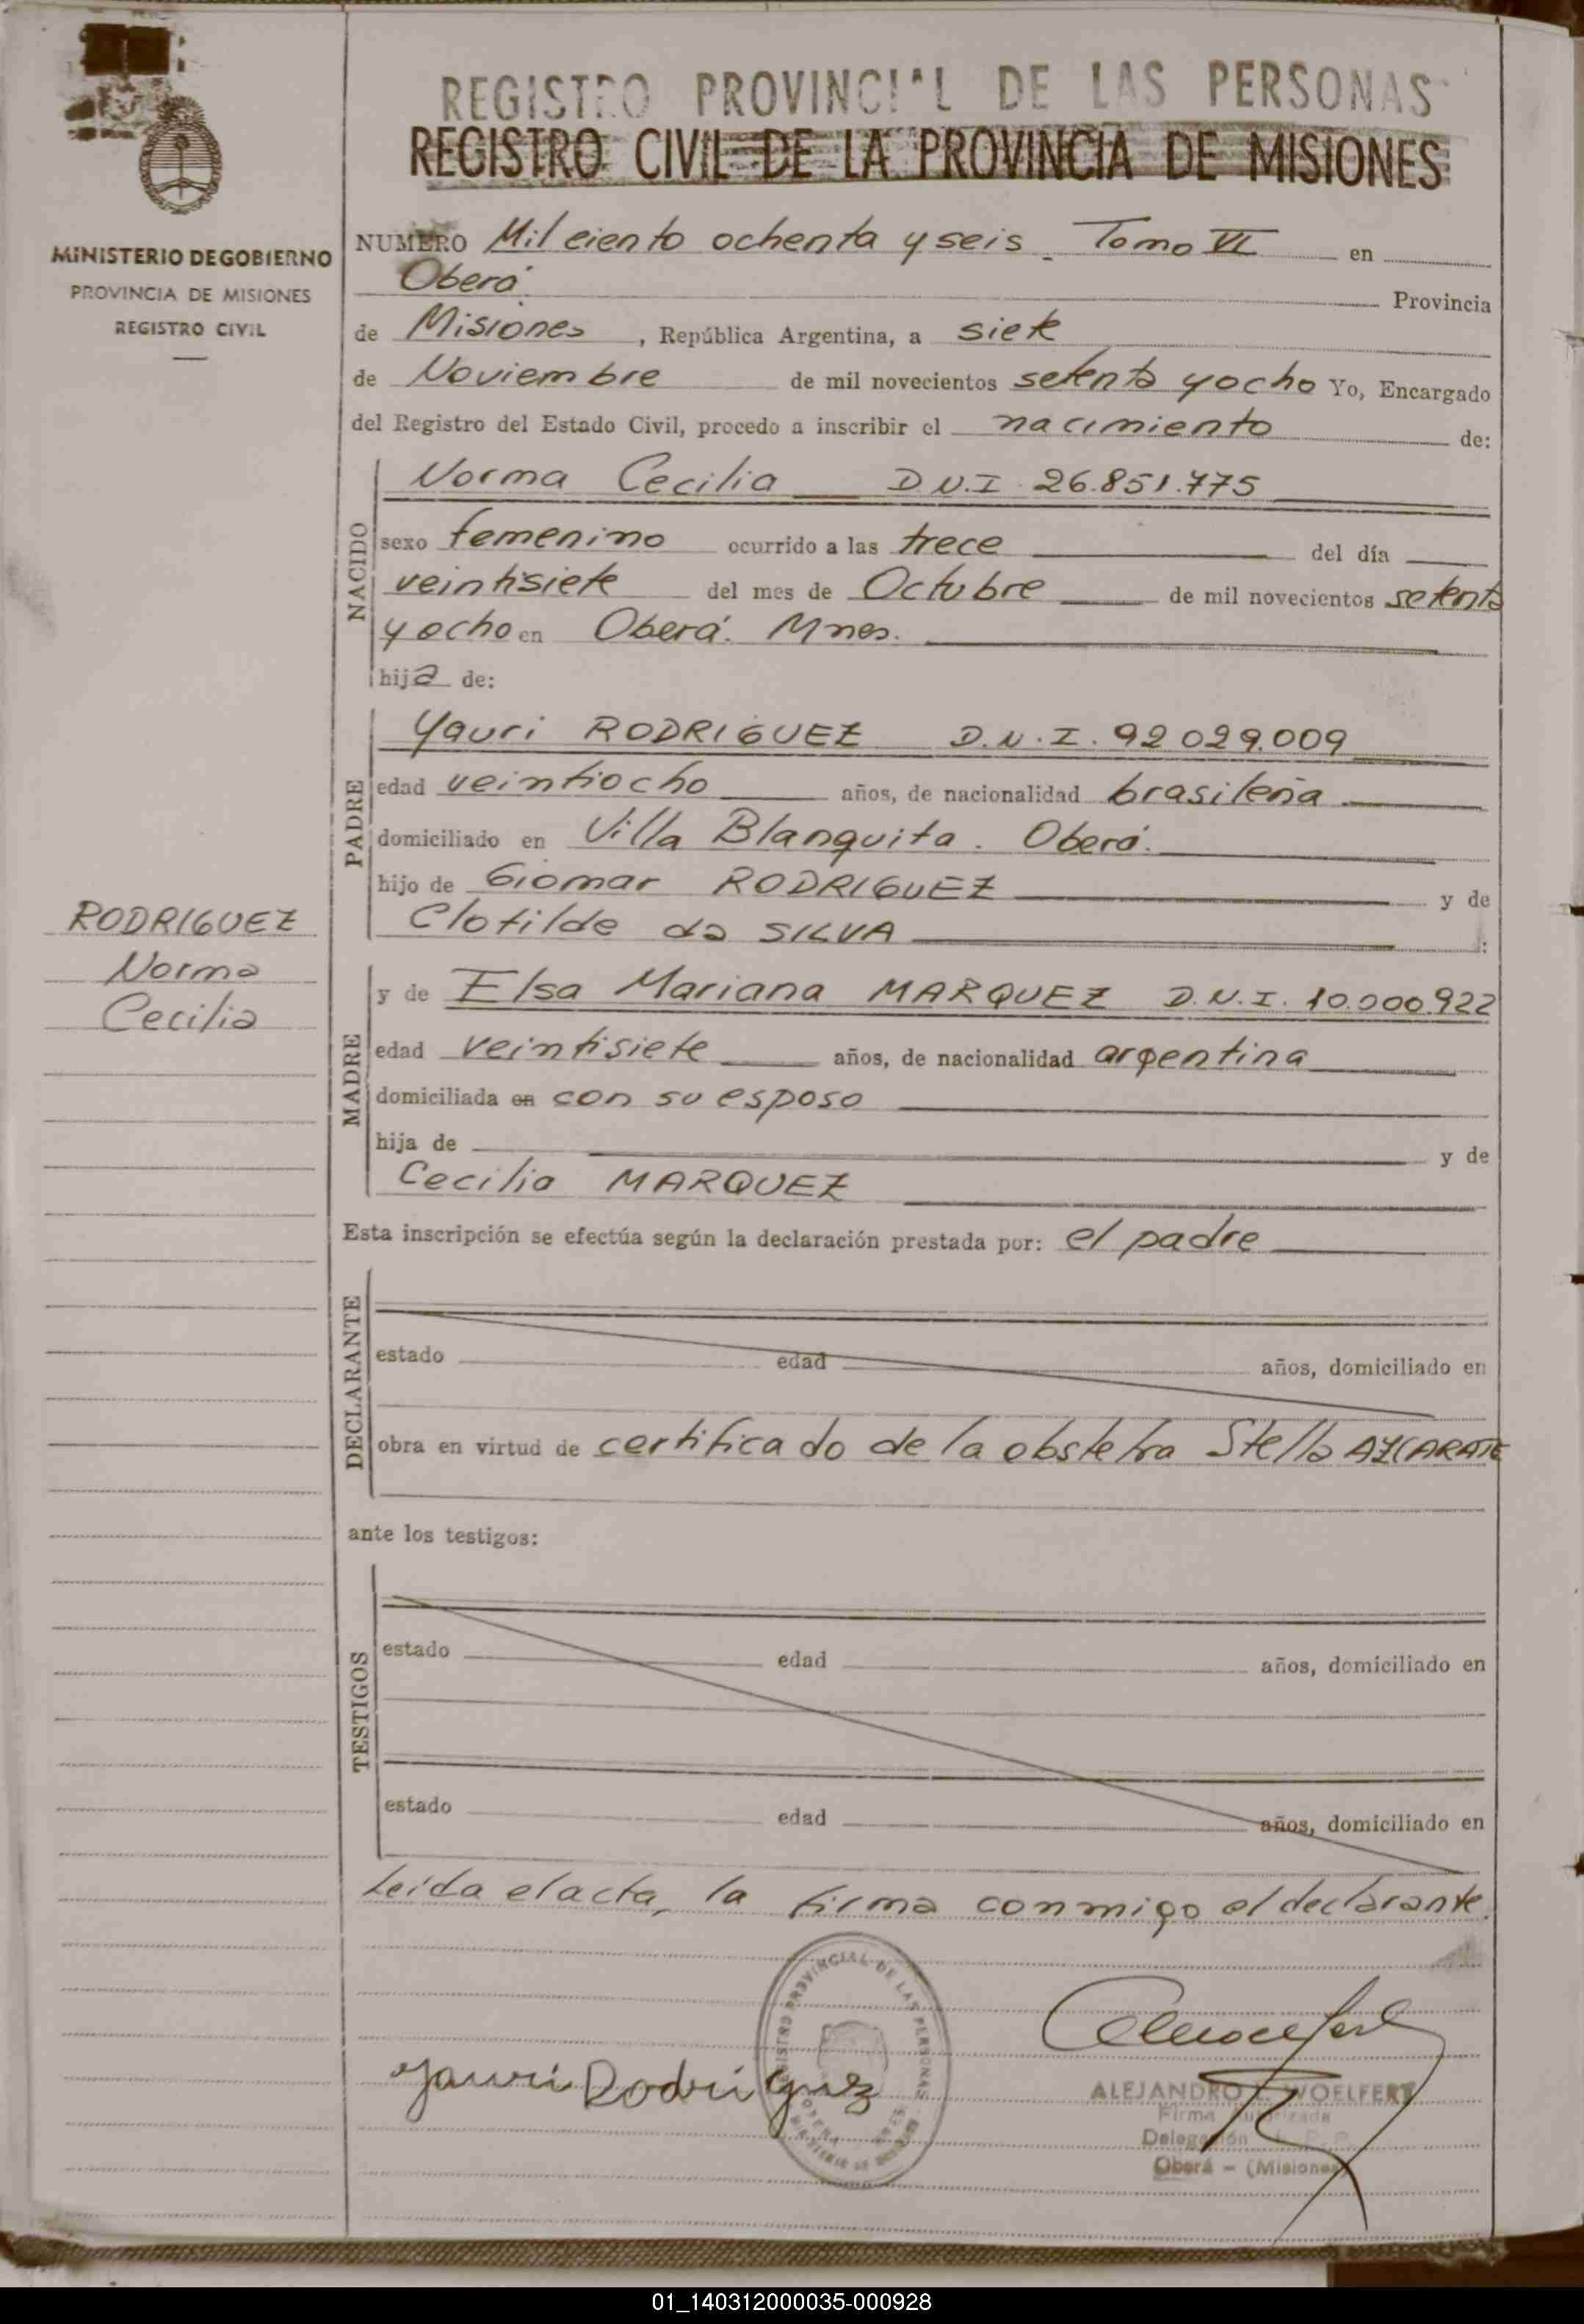 REGISTRO PROVINCIAL DE LAS PERSONAS
REGISTRO CIVIL DE LA PROVINCIA DE MISIONES
MINISTERIO DE GOBIERNO
PROVINCIA DE MISIONES
REGISTRO CIVIL
NUMERO Mil ciento ochenta y seis. Tomo VI en
Oberá Provincia
de Misiones, República Argentina, a siete
de Noviembre de mil novecientos setenta y ocho Yo, Encargado
del Registro del Estado Civil, procedo a inscribir el nacimiento de:
NACIDO
Norma Cecilia D.N.I. 26.851.775
sexo femenino ocurrido a las trece del día
veintisiete del mes de Octubre de mil novecientos setenta
y ocho en Oberá. Mnes.
hija de:
PADRE
Yauri RODRIGUEZ D.N.I. 92.029.009
edad veintiocho años, de nacionalidad brasileña
domiciliado en Villa Blanquita. Oberá.
hijo de Giomar RODRIGUEZ y de
Clotilde da SILVA
RODRIGUEZ
Norma
Cecilia
MADRE
y de Elsa Mariana MARQUEZ D.N.I. 10.000.922
edad veintisiete años, de nacionalidad argentina
domiciliada en con su esposo
hija de y de
Cecilia MARQUEZ
Esta inscripción se efectúa según la declaración prestada por: el padre
DECLARANTE
estado edad años, domiciliado en
obra en virtud de certificado de la obstetra Stella AZCARATE
ante los testigos:
TESTIGOS
estado edad años, domiciliado en
estado edad años, domiciliado en
Leída el acta, la firma conmigo el declarante.
REGISTRO PROVINCIAL DE LAS PERSONAS
Yauri Rodriguez
ALEJANDRO WOELFERT
Firma Autorizada
Delegación
Oberá - (Misiones)
01_140312000035-000928